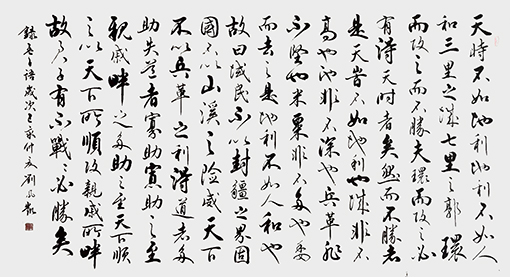 天時不如地利地利不如人
和三里之城七里之郭環
而攻之而不勝夫環而攻之必
有得天时者矣然而不勝者
是天時不如地利也城非不
高也池非不深也兵革非
不堅也米粟非不多也委
而去之是地利不如人和也
故曰域民不以封疆之界固
國不以山溪之險威天下
不以兵革之利得道者多
助失道者寡助寡助之至
親戚畔之多助之至天下順
之以天下之所順攻親戚之所畔
故君子有不戰戰必勝矣
錄孟子語歲次